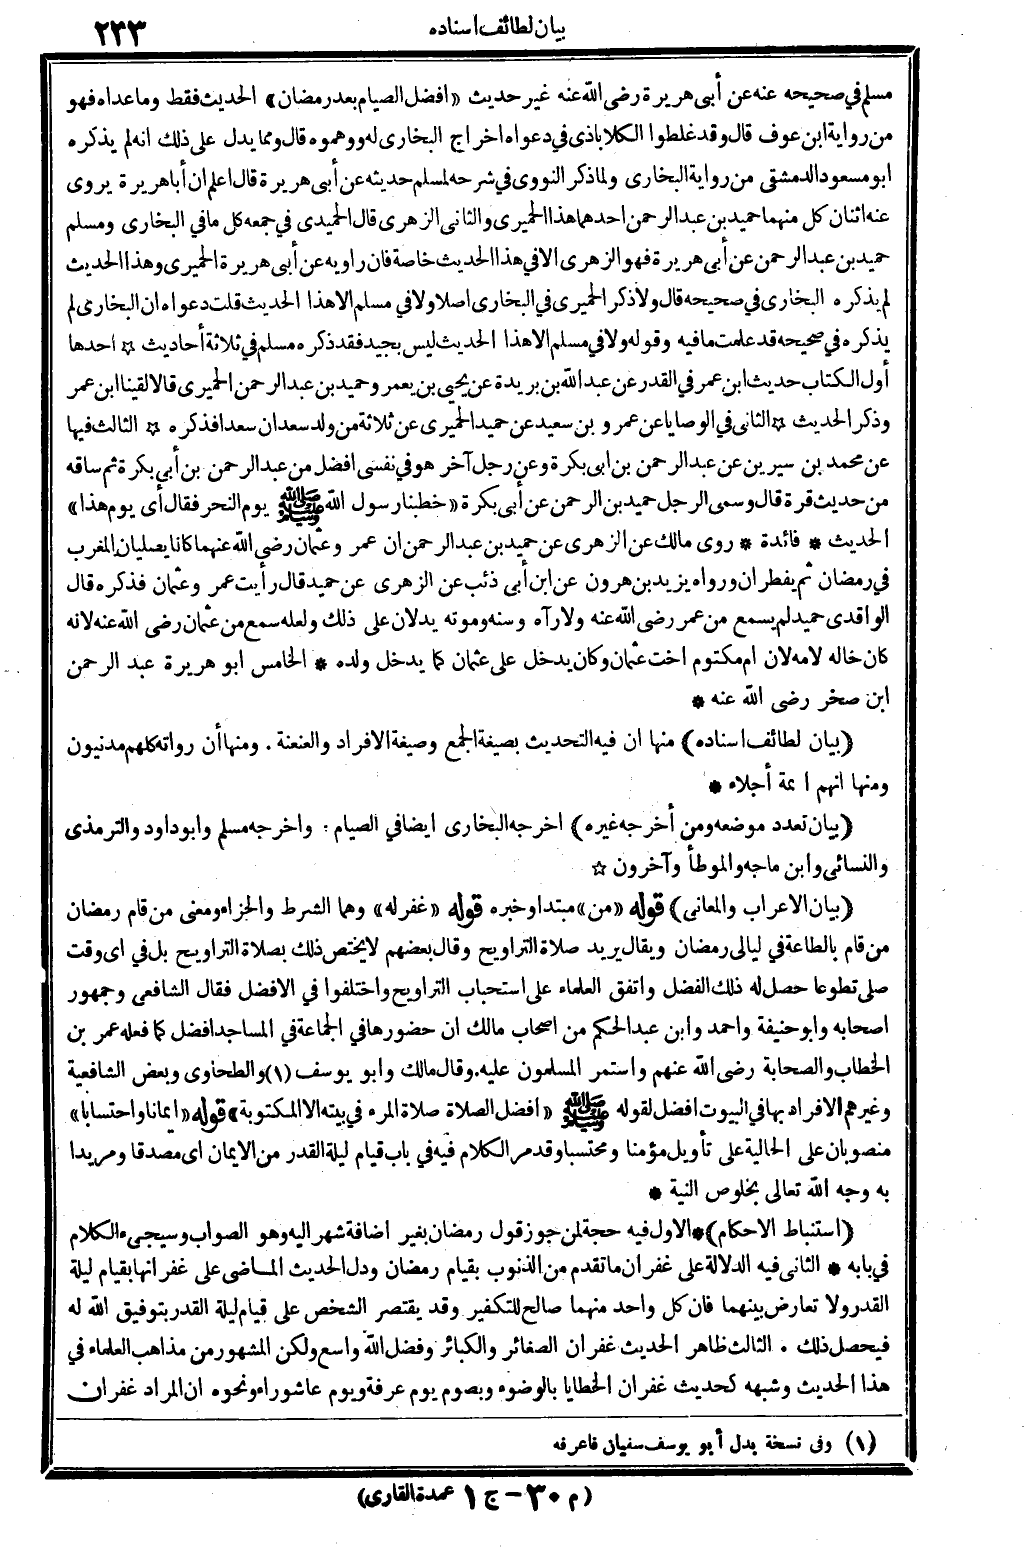 بيان لطائف اسناده
٢٣٣
مسلم في صحيحه عنه عن أبى هريرة رضى الله عنه غير حديث «افضل الصيام بعد رمضان» الحديث فقط وما عداه فهو
من رواية ابن عوف قال وقد غلطوا الكلاباذى في دعواه اخراج البخارى له ووهموه قال ومما يدل على ذلك انه لم يذكره
ابو مسعود الدمشقى من رواية البخارى ولما ذكر النووى في شرحه لمسلم حديثه عن أبى هريرة قال اعلم ان أبا هريرة يروى
عنه اثنان كل منهما حميد بن عبد الرحمن احدهما هذا الحميرى والثانى الزهرى قال الحميدى في جمعه كل ما في البخارى ومسلم
حميد بن عبد الرحمن عن أبى هريرة فهو الزهرى الا في هذا الحديث خاصة فان راويه عن أبى هريرة الحميرى وهذا الحديث
لم يذكره البخارى في صحيحه قال ولا ذكر الحميرى في البخارى اصلا ولا في مسلم الا هذا الحديث قلت دعواه ان البخارى لم
يذكره في صحيحه قد علمت ما فيه وقوله ولا في مسلم الا هذا الحديث ليس بجيد فقد ذكره مسلم في ثلاثة أحاديث ☆ احدها
أول الكتاب حديث ابن عمر في القدر عن عبد الله بن بريدة عن يحيى بن يعمر وحميد بن عبد الرحمن الحميرى قالا لقينا ابن عمر
وذكر الحديث ☆ الثانى في الوصايا عن عمرو بن سعيد عن حميد الحميرى عن ثلاثة من ولد سعد ان سعدا فذكره ☆ الثالث فيها
عن محمد بن سيرين عن عبد الرحمن بن ابى بكرة وعن رجل آخر هو في نفسى افضل من عبد الرحمن بن أبي بكرة ثم ساقه
من حديث قرة قال وسمى الرجل حميد بن الرحمن عن أبي بكرة «خطبنا رسول الله ﷺ يوم النحر فقال أى يوم هذا»
الحديث * فائدة * روى مالك عن الزهرى عن حميد بن عبد الرحمن ان عمر وعثمان رضى الله عنهما كانا يصليان المغرب
في رمضان ثم يفطران ورواه يزيد بن هرون عن ابن أبي ذئب عن الزهرى عن حميد قال رأيت عمر وعثمان فذكره قال
الواقدى حميد لم يسمع من عمر رضى الله عنه ولا رآه وسنه وموته يدلان على ذلك ولعله سمع من عثمان رضى الله عنه لانه
كان خاله لامه لان ام مكتوم اخت عثمان وكان يدخل على عثمان كما يدخل ولده * الخامس ابو هريرة عبد الرحمن
ابن صخر رضى الله عنه *
(بيان لطائف اسناده) منها ان فيه التحديث بصيغة الجمع وصيغة الافراد والعنعنة . ومنها أن رواته كلهم مدنيون
ومنها انهم ائمة أجلاء *
(بيان تعدد موضعه ومن أخرجه غيره) اخرجه البخارى ايضا في الصيام : واخرجه مسلم وابو داود والترمذى
والنسائى وابن ماجه والموطأ وآخرون ☆
(بيان الاعراب والمعانى) قوله «من» مبتدا وخبره قوله «غفر له» وهما الشرط والجزاء ومعنى من قام رمضان
من قام بالطاعة في ليالى رمضان ويقال يريد صلاة التراويح وقال بعضهم لا يختص ذلك بصلاة التراويح بل في اى وقت
صلى تطوعا حصل له ذلك الفضل واتفق العلماء على استحباب التراويح واختلفوا في الافضل فقال الشافعى وجمهور
اصحابه وابو حنيفة واحمد وابن عبد الحكم من اصحاب مالك ان حضورها في الجماعة في المساجد افضل كما فعله عمر بن
الخطاب والصحابة رضى الله عنهم واستمر المسلمون عليه. وقال مالك وابو يوسف (١) والطحاوى وبعض الشافعية
وغيرهم الافراد بها في البيوت افضل لقوله ﷺ «أفضل الصلاة صلاة المرء في بيته الا المكتوبة» قوله «ايمانا واحتسابا»
منصوبان على الحالية على تأويل مؤمنا ومحتسبا وقد مر الكلام فيه في باب قيام ليلة القدر من الايمان اى مصدقا ومريدا
به وجه الله تعالى بخلوص النية *
(استنباط الاحكام) * الاول فيه حجة لمن جوز قول رمضان بغير اضافة شهر اليه وهو الصواب وسيجىء الكلام
في بابه * الثانى فيه الدلالة على غفران ما تقدم من الذنوب بقيام رمضان ودل الحديث الماضى على غفرانها بقيام ليلة
القدر ولا تعارض بينهما فان كل واحد منهما صالح للتكفير وقد يقتصر الشخص على قيام ليلة القدر بتوفيق الله له
فيحصل ذلك . الثالث ظاهر الحديث غفران الصغائر والكبائر وفضل الله واسع ولكن المشهور من مذاهب العلماء في
هذا الحديث وشبهه كحديث غفران الخطايا بالوضوء وبصوم يوم عرفة ويوم عاشوراء ونحوه ان المراد غفران
(١) وفى نسخة بدل أبو يوسف سفيان فاعرفه
(م ٣٠ - ج ١ عمدة القارى)